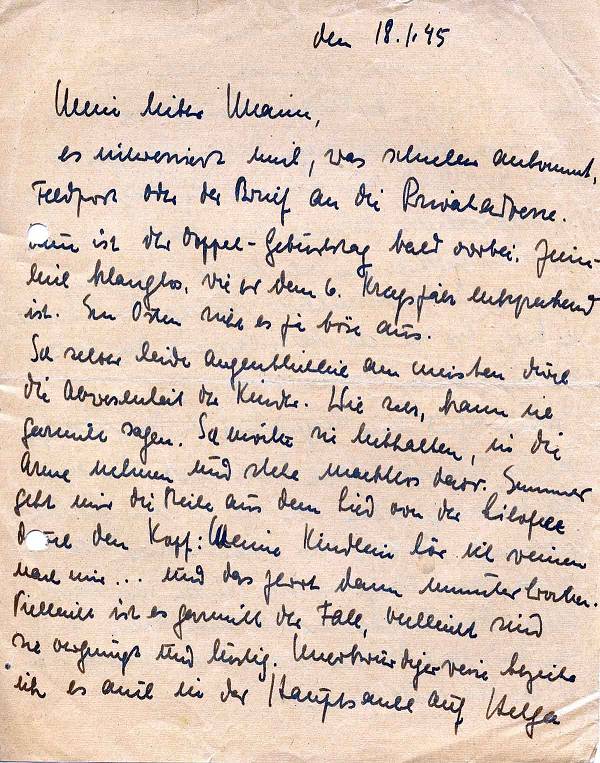 den 18.1.45
Mein lieber Mann,
es interessiert mich, was schneller ankommt,
Feldpost oder der Brief an die Privatadresse.
Nun ist der Doppel-Geburtstag bald vorbei. Ziem-
lich klanglos, wie es dem 6. Kriegsjahr entsprechend
ist. Im Osten sieht es ja böse aus.
Ich selber leide augenblicklich am meisten durch
die Abwesenheit der Kinder. Wie sehr, kann ich
garnicht sagen. Ich möchte sie liebhalten, in die
Arme nehmen und stehe machtlos davor. Immer
geht mir die Zeile aus dem Lied von der Lilofee
durch den Kopf: Meine Kindlein hör ich weinen
nach mir... und das zerrt dann ununterbrochen.
Vielleicht ist es garnicht der Fall, vielleicht sind
sie vergnügt und lustig. Merkwürdigerweise beziehe
ich es auch in der Hauptsache auf Helga